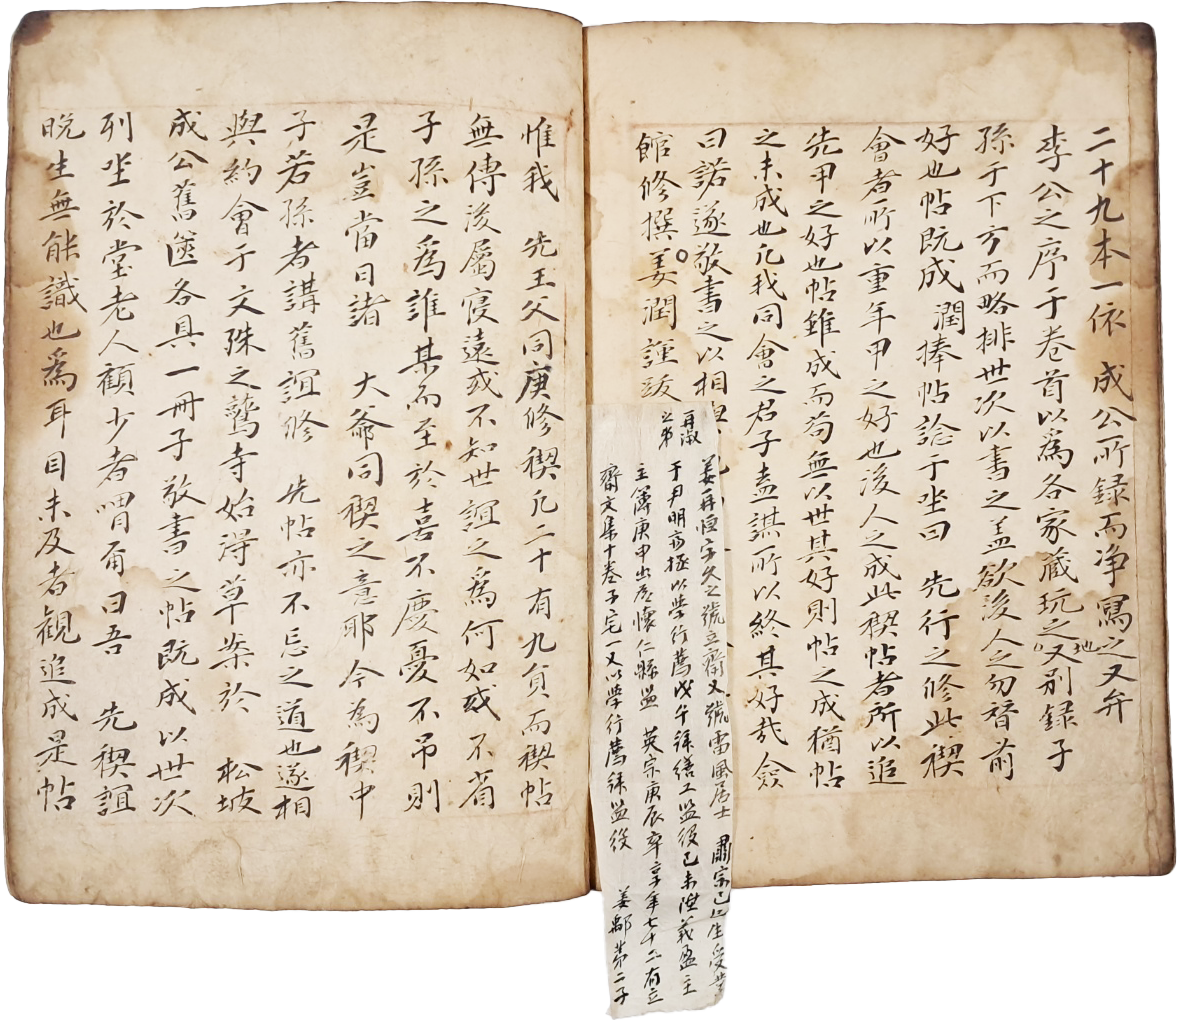 二十九本一依 成公所録而净寫之又弁
李公之序于卷首以爲各家蔵玩之地又別録子
孫于下方而略排世次以書之盖欲後人之勿替前
好也帖既成 潤捧帖診于坐曰 先行之修此稧
會者所以重年甲之好也後人之成此稧帖者所以追
先甲之好也帖雖成而苟無以世其好則帖之成猶帖
之未成也凡我同會之君子盍謀所以終其好哉僉
曰諾遂敬書之以相
館修撰姜潤謹跋
再淑
公弟
姜再恒字久之號立齋又號雷風居士 肅宗己巳生受業
于尹明齋拯以學行薦戊午拜繕工監役己未陞義盈主
主簿庚申出爲懷仁縣監 英宗庚辰卒享年七十二有立
齋文集十卷子宅一又以學行薦拜監役 姜鄩第二子
惟我 先王父同庚修稧凡二十有九員而稧帖
無傳後屬寖遠或不知世誼之爲何如或不省
子孫之爲誰某而至於喜不慶憂不吊則
是豈當日諸 大爺同稧之意耶今為稧中
子若孫者講舊誼修 先帖亦不忘之道也遂相
與約會于文殊之鷲寺始淂草案於 松坡
成公舊篋各具一冊子敬書之帖既成以世次
列坐於堂老人顧少者喟而曰吾 先稧誼
晩生無能識也爲耳目未及者観追成是帖